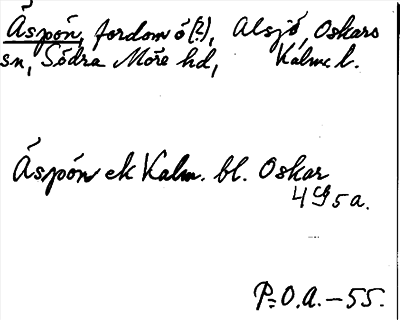 Åspön, fordom ö (?), Alsjö, Oskars
sn, Södra Möre hd, Kalm. l.
Åspön ek Kalm. bl. Oskar
4 9 5 a.
P.O.A. - 55.